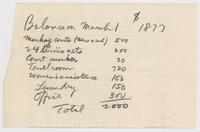 Balance on March 1 $1877
Marking carts (tennis) 500
24 tennis nets 200
Court marker 30
Towel room 720
Womens assistance 100
Laundry 150
Office 300
Total 2000